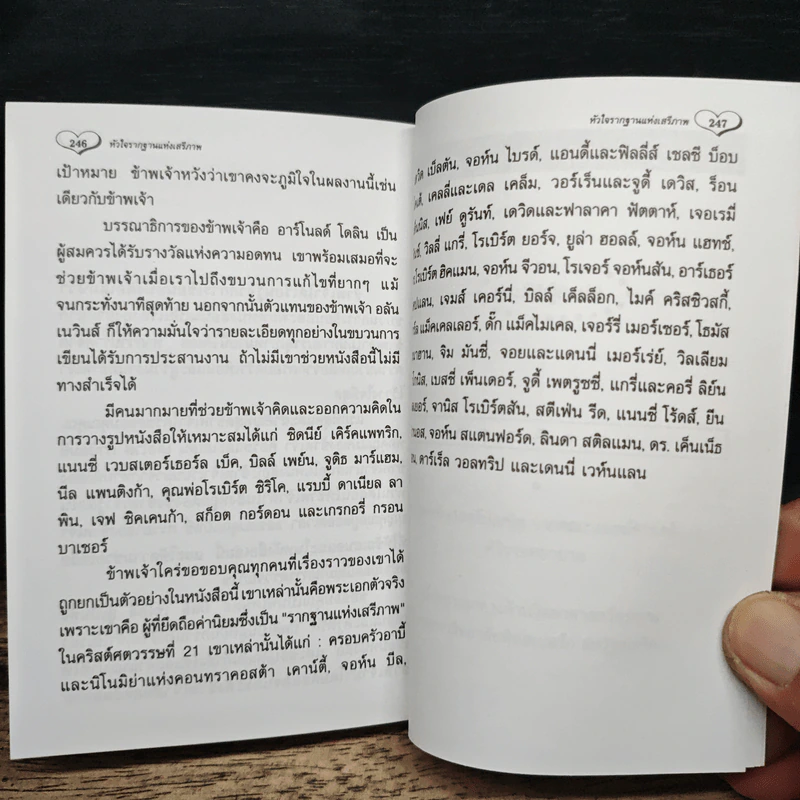 246
หัวใจรากฐานแห่งเสรีภาพ
เป้าหมาย ข้าพเจ้าหวังว่าเขาคงจะภูมิใจในผลงานนี้เช่น
เดียวกับข้าพเจ้า
บรรณาธิการของข้าพเจ้าคือ อาร์โนลด์ โดลิน เป็น
ผู้สมควรได้รับรางวัลแห่งความอดทน เขาพร้อมเสมอที่จะ
ช่วยข้าพเจ้าเมื่อเราไปถึงขบวนการแก้ไขที่ยากๆ แม้
จนกระทั่งนาทีสุดท้าย นอกจากนั้นตัวแทนของข้าพเจ้า อลัน
เนวินส์ ก็ให้ความมั่นใจว่ารายละเอียดทุกอย่างในขบวนการ
เขียนได้รับการประสานงาน ถ้าไม่มีเขาช่วยหนังสือนี้ไม่มี
ทางสำเร็จได้
มีคนมากมายที่ช่วยข้าพเจ้าคิดและออกความคิดใน
การวางรูปหนังสือให้เหมาะสมได้แก่ ซิดนีย์ เคิร์คแพทริก,
แนนซี่ เวบสเตอร์เธอร์ล เบ็ค, บิลล์ เพย์น, จูดิธ มาร์แฮม,
นีล แพนติงก้า, คุณพ่อโรเบิร์ต ซิริโค, แรบบี้ ดาเนียล ลา
พิน, เจฟ ซิคเคนก้า, สก็อต กอร์ดอน และเกรกอรี่ กรอน
บาเชอร์
ข้าพเจ้าใคร่ขอขอบคุณทุกคนที่เรื่องราวของเขาได้
ถูกยกเป็นตัวอย่างในหนังสือนี้ เขาเหล่านั้นคือพระเอกตัวจริง
เพราะเขาคือ ผู้ที่ยึดถือค่านิยมซึ่งเป็น "รากฐานแห่งเสรีภาพ"
ในคริสต์ศตวรรษที่ 21 เขาเหล่านั้นได้แก่ : ครอบครัวอาบี้
และนิโนมิย่าแห่งคอนทราคอสต้า เคาน์ตี้, จอห์น บีล,
หัวใจรากฐานแห่งเสรีภาพ
247
เบ็ลตัน, จอห์น ไบรด์, แอนดี้และฟิลลี่ส์ เชลซี บ็อบ
เคลลี่และเดล เคล็ม, วอร์เร็นและจูดี้ เดวิส, ร็อน
เฟย์ ดูรันท์, เดวิดและฟาลาคา ฟัตตาห์, เจอเรมี่
วิลลี่ แกรี่, โรเบิร์ต ยอร์จ, ยูล่า ฮอลล์, จอห์น แฮทช์,
โรเบิร์ต ฮิคแมน, จอห์น จีวอน, โรเจอร์ จอห์นสัน, อาร์เธอร์
เจมส์ เคอร์นี่, บิลล์ เค็ลล็อก, ไมค์ คริสซิวสกี้,
แม็คเคลเลอร์, ดั๊ก แม็คไมเคล, เจอร์รี่ เมอร์เซอร์, โธมัส
จิม มันซี่, จอยและแดนนี่ เมอร์เร่ย์, วิลเลียม
เบสซี่ เพ็นเดอร์, จูดี้ เพตรูซซี่, แกรี่และคอรี่ ลิย์น
จานิส โรเบิร์ตสัน, สตีเฟ่น รีด, แนนซี่ โร้ดส์, ยีน
จอห์น สแตนฟอร์ด, ลินดา สติลแมน, ดร. เค็นเน็ธ
ดาร์เร็ล วอลทริป และเดนนี่ เวห์นแลน